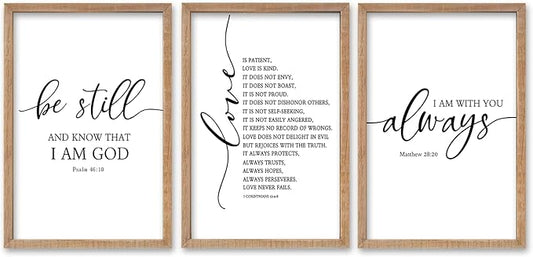 be still
AND KNOW THAT
I AM GOD
Psalm 46:10
love
IS PATIENT,
LOVE IS KIND.
IT DOES NOT ENVY,
IT DOES NOT BOAST,
IT IS NOT PROUD.
IT DOES NOT DISHONOR OTHERS,
IT IS NOT SELF-SEEKING,
IT IS NOT EASILY ANGERED,
IT KEEPS NO RECORD OF WRONGS.
LOVE DOES NOT DELIGHT IN EVIL
BUT REJOICES WITH THE TRUTH.
IT ALWAYS PROTECTS,
ALWAYS TRUSTS,
ALWAYS HOPES,
ALWAYS PERSEVERES.
LOVE NEVER FAILS.
1 CORINTHIANS 13:4-8
I AM WITH YOU
always
Matthew 28:20